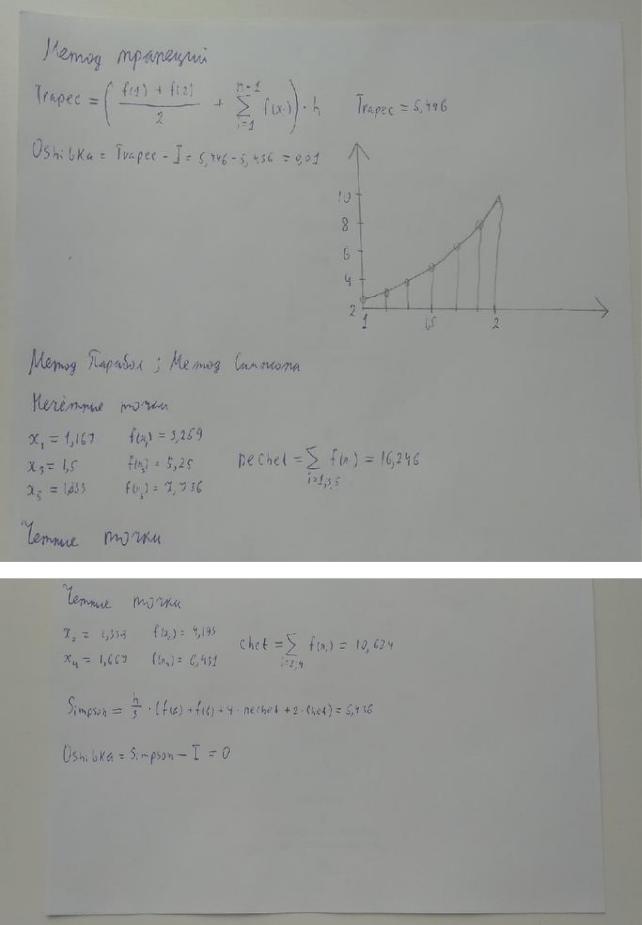 Метод трапеций
Trapec = ( f(1) + f(2) / 2 + n-1 ∑ i=1 f(xi) ) · h Trapec = 5,446
Oshibka = Trapec - I = 5,446 - 5,436 = 0,01
10
8
6
4
2
1 1,5 2
Метод Парабол ; Метод Симпсона
Нечётные точки
x₁ = 1,167 f(x₁) = 3,259
x₃ = 1,5 f(x₃) = 5,25 nechet = ∑ i=1,3,5 f(xi) = 16,246
x₅ = 1,833 f(x₅) = 7,736
Четные точки
Четные точки
x₂ = 1,333 f(x₂) = 4,193 chet = ∑ i=2,4 f(xi) = 10,624
x₄ = 1,667 f(x₄) = 6,431
Simpson = h/3 · (f(a) + f(b) + 4 · nechet + 2 · chet) = 5,436
Oshibka = Simpson - I = 0